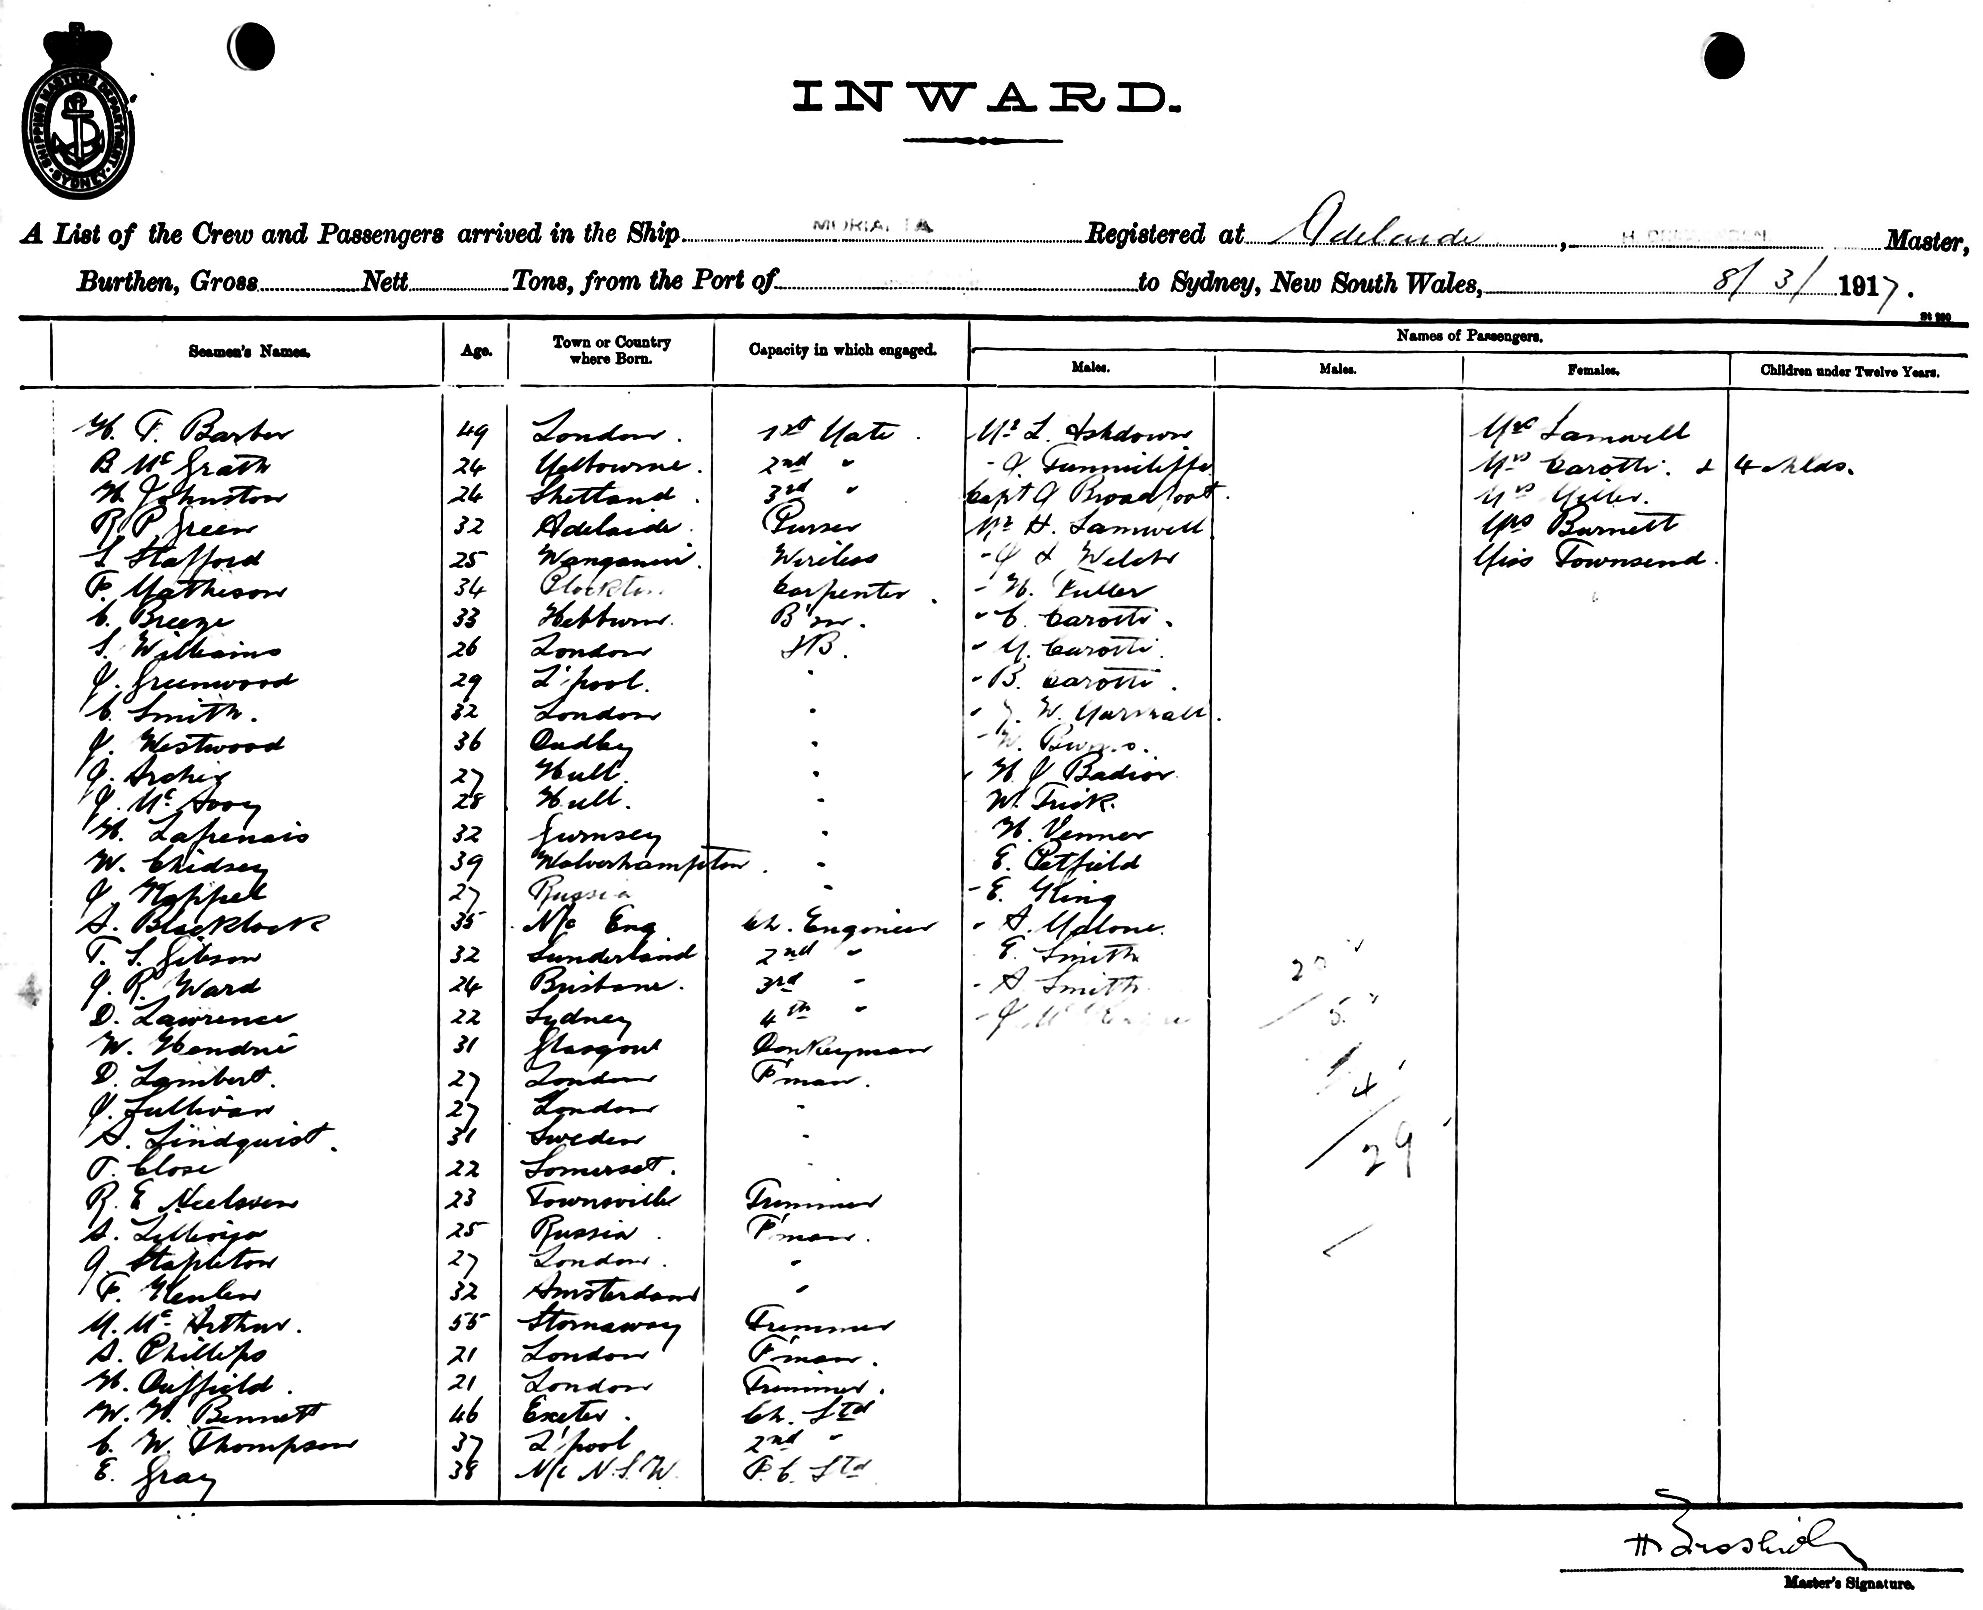 SHIPPING MASTERS DEPARTMENT SYDNEY
INWARD.
A List of the Crew and Passengers arrived in the Ship MORIALTA Registered at Adelaide, H. Master,
Burthen, Gross Nett Tons, from the Port of to Sydney, New South Wales, 8/3/1917.
Names of Passengers.
Seamen's Names. Age. Town or Country where Born. Capacity in which engaged. Males. Males. Females. Children under Twelve Years.
H. F. Barber 49 London. 1st Mate. Mr L. Ashdown Mrs Lamwell
B McGrath 24 Melbourne. 2nd " - J. Tunnicliffe Mrs Carotti. & 4 chlds.
W Johnston 24 Shetland. 3rd " Capt J Broadfoot. Mrs Miller.
R P Green 32 Adelaide. Purser Mr H. Lamwell Mrs Burnett
L Stafford 25 Wanganui. Wireless - J & Welch Miss Townsend.
F. Mathieson 34 Plockton Carpenter. - H. Fuller
C. Breeze 33 Hebburn. B'm. " C. Carotti.
S. Williams 26 London AB. " M. Carotti.
J. Greenwood 29 L'pool. " " B. Carotti.
C. Smith. 32 London " " J. W. Marshall.
J. Westwood 36 Oadby " " W. Burns.
J. Archer 27 Hull. " " H. J Badior
J. McAvoy 28 Hull. " W. Trick.
H. Lapenais 32 Gurnsey " H. Venner
W. Chidsey 39 Wolverhampton. " E. Petfield
J. Koppel 27 Russia " - E. King
A. Blacklock 35 N/c Eng Ch. Engineer " A. Malone.
T. S. Gibson 32 Sunderland 2nd " E. Smith
J. R. Ward 24 Brisbane. 3rd " - A Smith
D. Lawrence 22 Sydney 4th " - J Mc
W. Hendrie 31 Glasgow Donkeyman 5
D. Lambert. 27 London F'man. 4
J. Sullivan 27 London "
A. Lindquist. 31 Sweden " 29
T. Close 22 Somerset. "
R. E Neelsen 23 Townsville Trimmer
A. 25 Russia. F'man.
J. Stapleton 27 London. "
F. Henlen 32 Amsterdam "
M. McArthur. 55 Stornaway Trimmer
A. Phillips 21 London F'man.
H. Duffield. 21 London Trimmer.
W. H. Bennett 46 Exeter. Ch. Std
C. W. Thompson 37 L'pool 2nd "
E. Gray 38 N/c N.S.W. F.C. Std
Master's Signature.